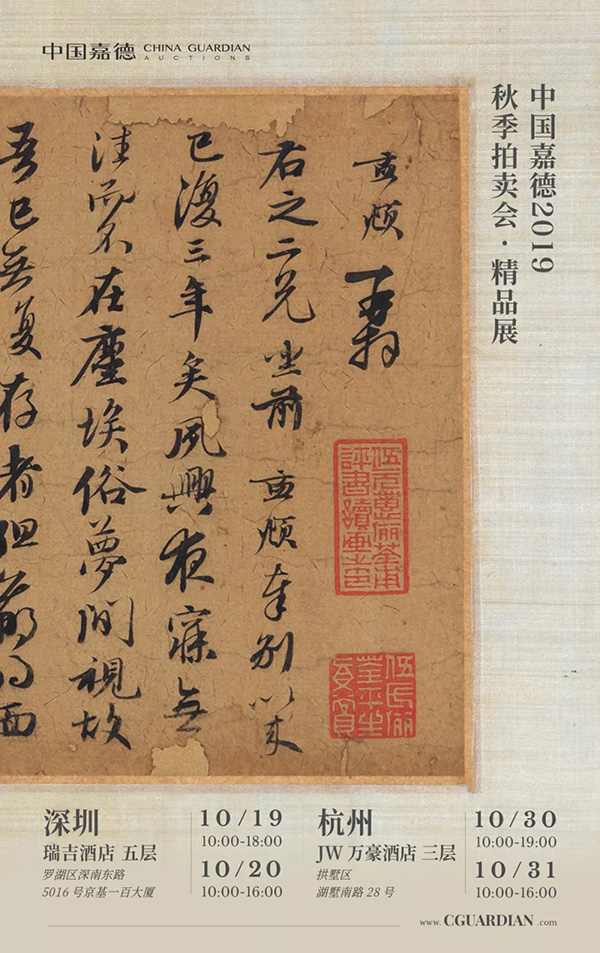 中国嘉德 CHINA GUARDIAN
AUCTIONS
中国嘉德2019
秋季拍卖会·精品展
孟頫
再拜
右之二兄坐前孟頫奉别以来
已復三年矣夙興夜寐無
注而不在塵埃俗夢間視故
吾已无复存者但
面
深圳
瑞吉酒店 五层
罗湖区深南东路
5016 号京基一百大厦
10/19
10:00-18:00
10/20
10:00-16:00
杭州
JW 万豪酒店 三层
拱墅区
湖墅南路 28 号
10/30
10:00-19:00
10/31
10:00-16:00
www.CGUARDIAN.com